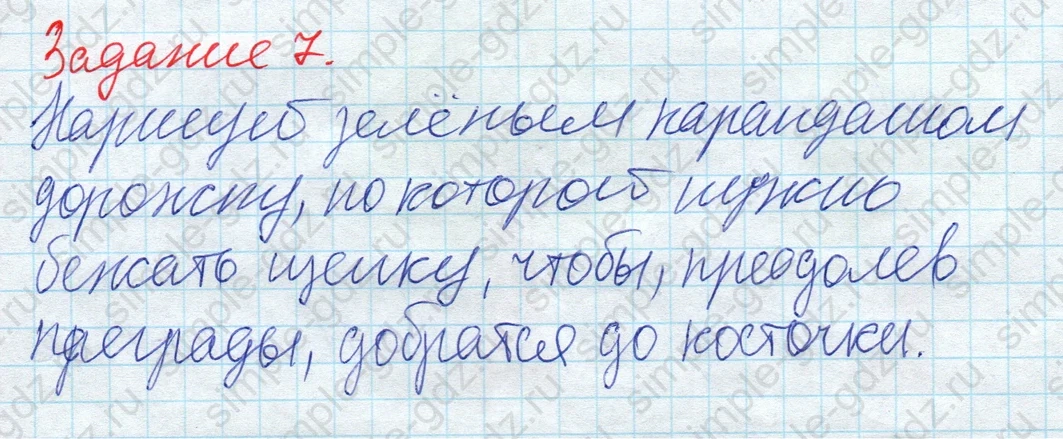 Задание 7.
Нарисуй зелёным карандашом
дорожку, по которой нужно
бежать щенку, чтобы, преодолев
преграды, добратся до косточки.
simple-gdz.ru